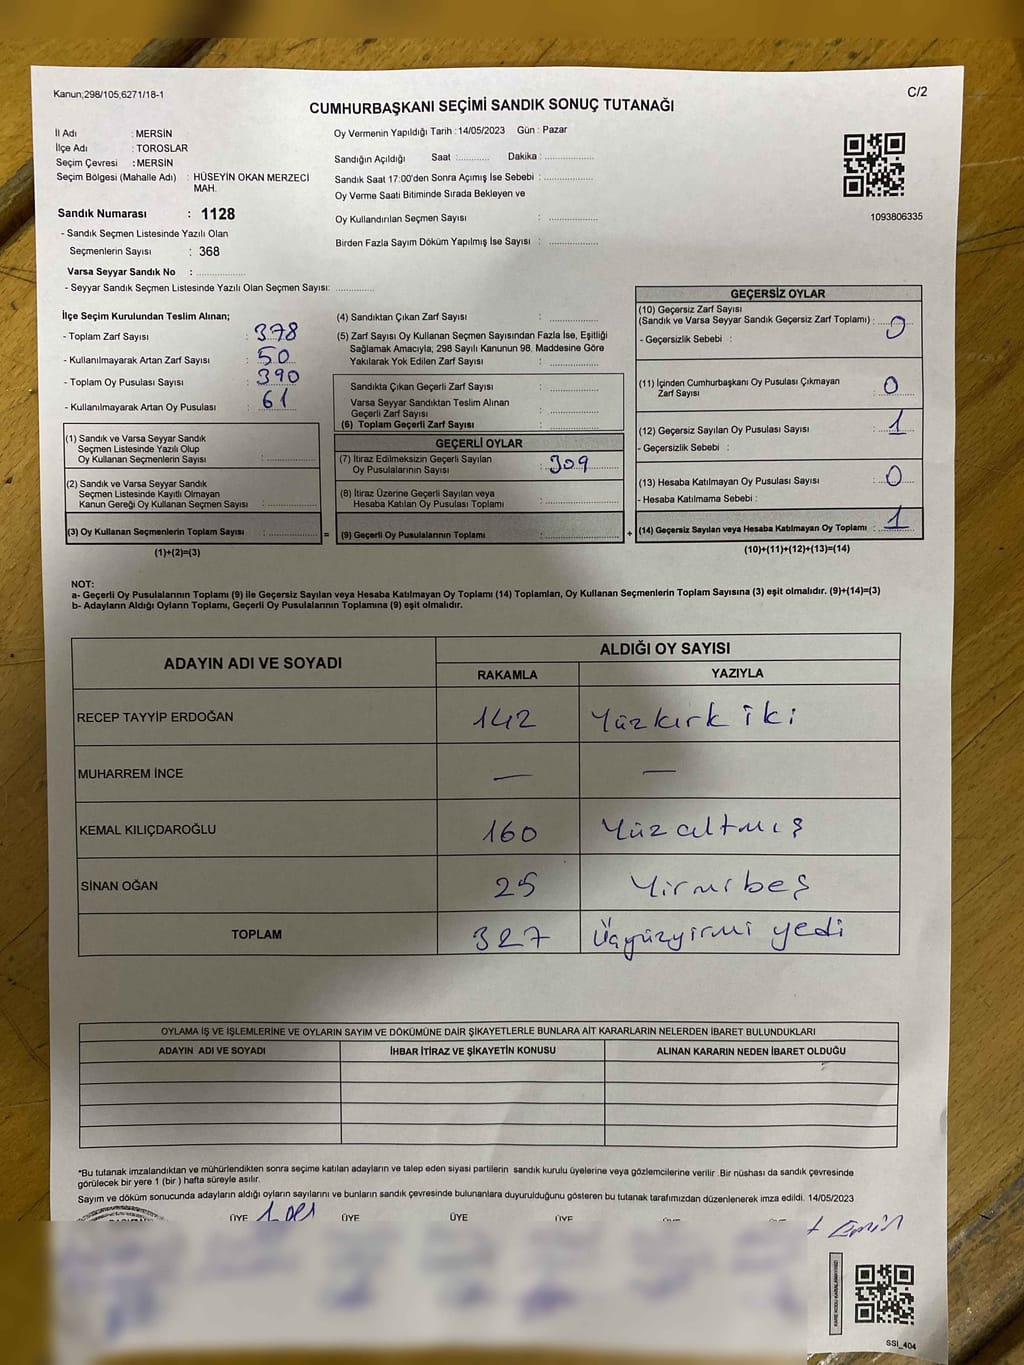 Kanun;298/105,6271/18-1
C/2
CUMHURBAŞKANI SEÇİMİ SANDIK SONUÇ TUTANAĞI
İl Adı : MERSİN
İlçe Adı : TOROSLAR
Seçim Çevresi : MERSİN
Seçim Bölgesi (Mahalle Adı) : HÜSEYİN OKAN MERZECİ
MAH.
Sandık Numarası : 1128
- Sandık Seçmen Listesinde Yazılı Olan
Seçmenlerin Sayısı : 368
Varsa Seyyar Sandık No : ................
- Seyyar Sandık Seçmen Listesinde Yazılı Olan Seçmen Sayısı: .............
Oy Vermenin Yapıldığı Tarih : 14/05/2023 Gün : Pazar
Sandığın Açıldığı Saat :........... Dakika : ................
Sandık Saat 17:00'den Sonra Açımış İse Sebebi : ................
Oy Verme Saati Bitiminde Sırada Bekleyen ve
Oy Kullandırılan Seçmen Sayısı : ................
Birden Fazla Sayım Döküm Yapılmış İse Sayısı : ................
1093806335
İlçe Seçim Kurulundan Teslim Alınan;
- Toplam Zarf Sayısı : 378
- Kullanılmayarak Artan Zarf Sayısı : 50
- Toplam Oy Pusulası Sayısı : 390
- Kullanılmayarak Artan Oy Pusulası : 61
(1) Sandık ve Varsa Seyyar Sandık
Seçmen Listesinde Yazılı Olup
Oy Kullanan Seçmenlerin Sayısı : ................
(2) Sandık ve Varsa Seyyar Sandık
Seçmen Listesinde Kayıtlı Olmayan
Kanun Gereği Oy Kullanan Seçmen Sayısı : ................
(3) Oy Kullanan Seçmenlerin Toplam Sayısı : ................ =
(1)+(2)=(3)
(4) Sandıktan Çıkan Zarf Sayısı : ................
(5) Zarf Sayısı Oy Kullanan Seçmen Sayısından Fazla İse, Eşitliği
Sağlamak Amacıyla; 298 Sayılı Kanunun 98. Maddesine Göre
Yakılarak Yok Edilen Zarf Sayısı : ................
Sandıkta Çıkan Geçerli Zarf Sayısı : ................
Varsa Seyyar Sandıktan Teslim Alınan
Geçerli Zarf Sayısı : ................
(6) Toplam Geçerli Zarf Sayısı : ................
GEÇERLİ OYLAR
(7) İtiraz Edilmeksizin Geçerli Sayılan
Oy Pusulalarının Sayısı : 309
(8) İtiraz Üzerine Geçerli Sayılan veya
Hesaba Katılan Oy Pusulası Toplamı : ................
(9) Geçerli Oy Pusulalarının Toplamı : ................ +
GEÇERSİZ OYLAR
(10) Geçersiz Zarf Sayısı
(Sandık ve Varsa Seyyar Sandık Geçersiz Zarf Toplamı) : 0
- Geçersizlik Sebebi :
(11) İçinden Cumhurbaşkanı Oy Pusulası Çıkmayan
Zarf Sayısı : 0
(12) Geçersiz Sayılan Oy Pusulası Sayısı : 1
- Geçersizlik Sebebi :
(13) Hesaba Katılmayan Oy Pusulası Sayısı : 0
- Hesaba Katılmama Sebebi :
(14) Geçersiz Sayılan veya Hesaba Katılmayan Oy Toplamı : 1
(10)+(11)+(12)+(13)=(14)
NOT:
a- Geçerli Oy Pusulalarının Toplamı (9) ile Geçersiz Sayılan veya Hesaba Katılmayan Oy Toplamı (14) Toplamları, Oy Kullanan Seçmenlerin Toplam Sayısına (3) eşit olmalıdır. (9)+(14)=(3)
b- Adayların Aldığı Oyların Toplamı, Geçerli Oy Pusulalarının Toplamına (9) eşit olmalıdır.
ADAYIN ADI VE SOYADI ALDIĞI OY SAYISI
RAKAMLA YAZIYLA
RECEP TAYYİP ERDOĞAN 142 Yüzkırk iki
MUHARREM İNCE — —
KEMAL KILIÇDAROĞLU 160 Yüzaltmış
SİNAN OĞAN 25 Yirmibeş
TOPLAM 327 Üçyüzyirmi yedi
OYLAMA İŞ VE İŞLEMLERİNE VE OYLARIN SAYIM VE DÖKÜMÜNE DAİR ŞİKAYETLERLE BUNLARA AİT KARARLARIN NELERDEN İBARET BULUNDUKLARI
ADAYIN ADI VE SOYADI İHBAR İTİRAZ VE ŞİKAYETİN KONUSU ALINAN KARARIN NEDEN İBARET OLDUĞU
*Bu tutanak imzalandıktan ve mühürlendikten sonra seçime katılan adayların ve talep eden siyasi partilerin sandık kurulu üyelerine veya gözlemcilerine verilir .Bir nüshası da sandık çevresinde
görülecek bir yere 1 (bir ) hafta süreyle asılır.
Sayım ve döküm sonucunda adayların aldığı oyların sayılarını ve bunların sandık çevresinde bulunanlara duyurulduğunu gösteren bu tutanak tarafımızdan düzenlenerek imza edildi. 14/05/2023
ÜYE ÜYE ÜYE ÜYE
SSI_404